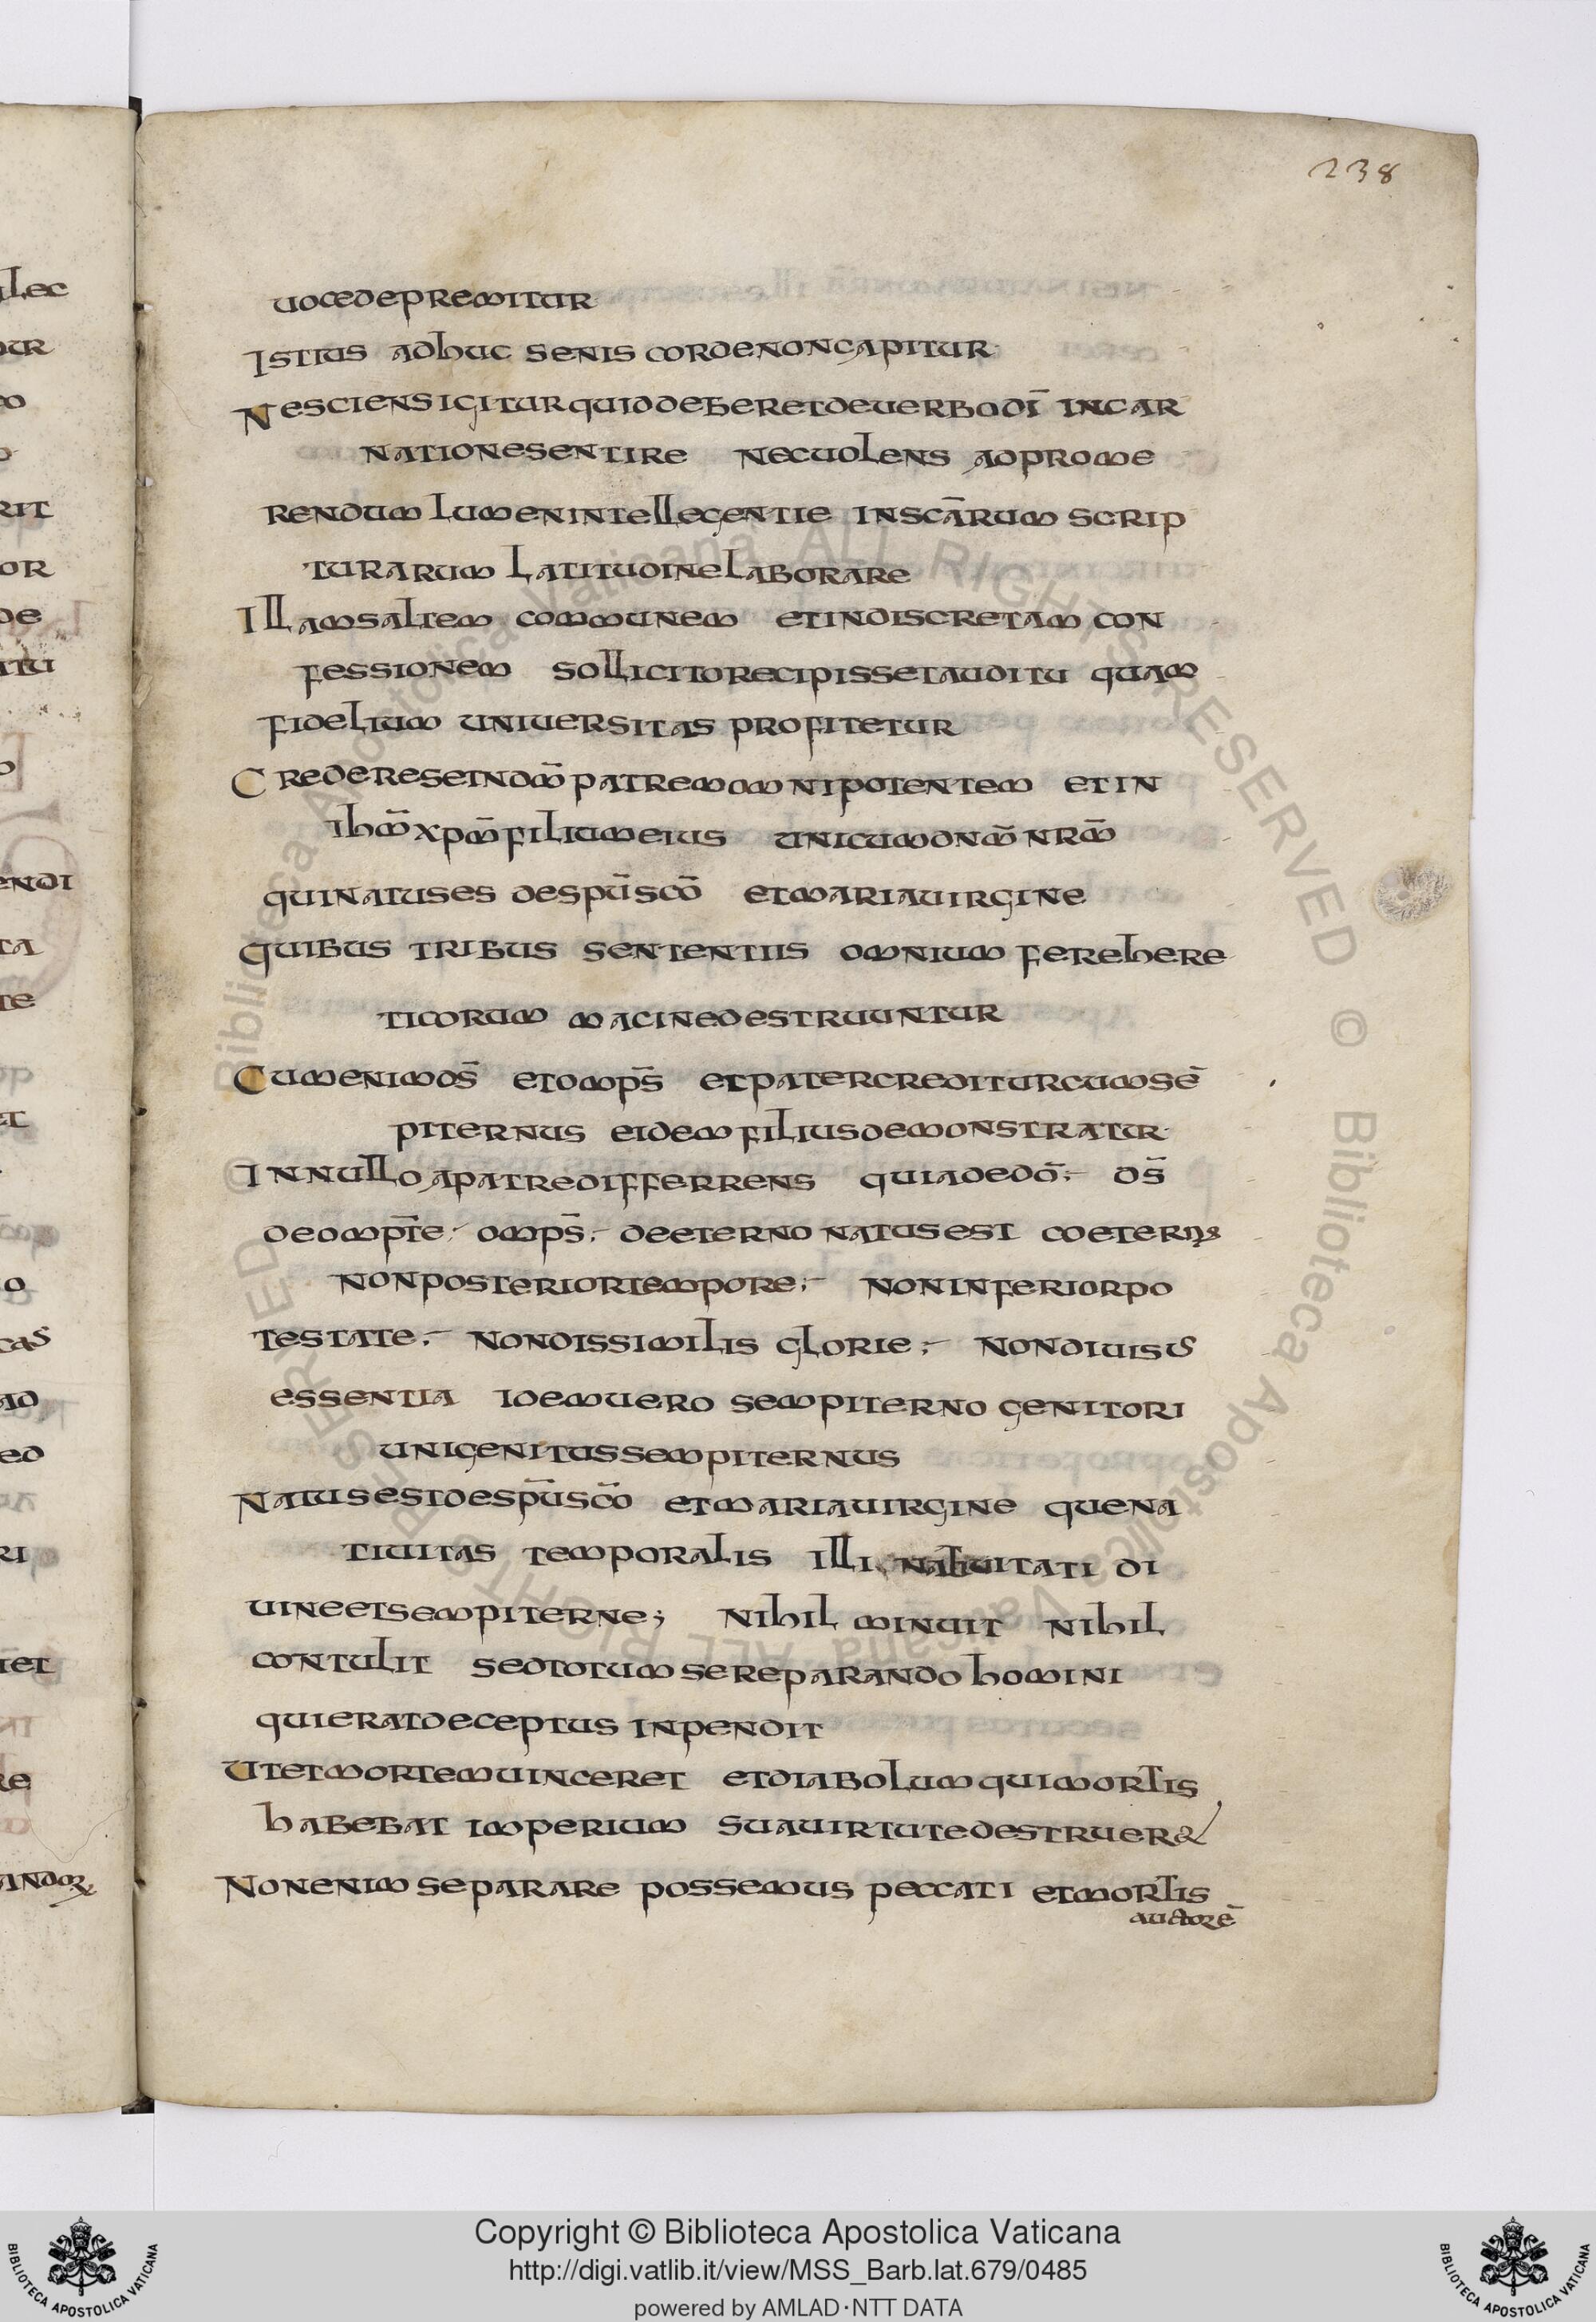 238
uocedepremitur
Istius adhuc senis cordenoncapitur
Nesciensigiturquiddeberetdeuerbodī incar
nationesentire necuolens adprome
rendum lumenintellegentie inscārum scrip
turarum latitudinelaborare
Illamsaltem communem etindiscretam con
fessionem sollicitorecipissetauditu quam
fidelium uniuersitas profitetur
Credereseindm̄ patremomnipotentem et in
ihm̄ xpm̄ filiumeius unicumdnm̄ nrm̄
quinatuses despūscō etmariauirgine
quibus tribus sententiis omnium ferehere
ticorum macinedestruuntur
Cumenimds̄ etomps̄ etpatercrediturcumsē
piternus eidemfiliusdemonstratur
Innullo apatredifferrens quiadedō ds̄
deompt̄e omps̄ deeterno natusest coeternꝰ
nonposteriortempore noninferiorpo
testate nondissimilis glorie nondiuisus
essentia idemuero sempiterno genitori
unigenitussempiternus
Natusestdespūscō etmariauirgine quena
tiuitas temporalis illi natiuitati di
uineetsempiterne; nihil minuit nihil
contulit sedtotumsereparando homini
quieratdeceptus inpendit
Utetmortemuinceret etdiabolumquimortis
habebat imperium suauirtutedestruer&
Nonenimseparare possemus peccati etmortis
auctorē
lec
ur
rit
or
de
itu
endi
ta
te
et
o
cas
ad
ed
ri
et
re
andoꝝ
Copyright © Biblioteca Apostolica Vaticana
http://digi.vatlib.it/view/MSS_Barb.lat.679/0485
powered by AMLAD·NTT DATA
BIBLIOTECA APOSTOLICA VATICANA
BIBLIOTECA APOSTOLICA VATICANA
Biblioteca Apostolica Vaticana ALL RIGHTS RESERVED © Biblioteca Apostolica Vaticana ALL RIGHTS RESERVED ©